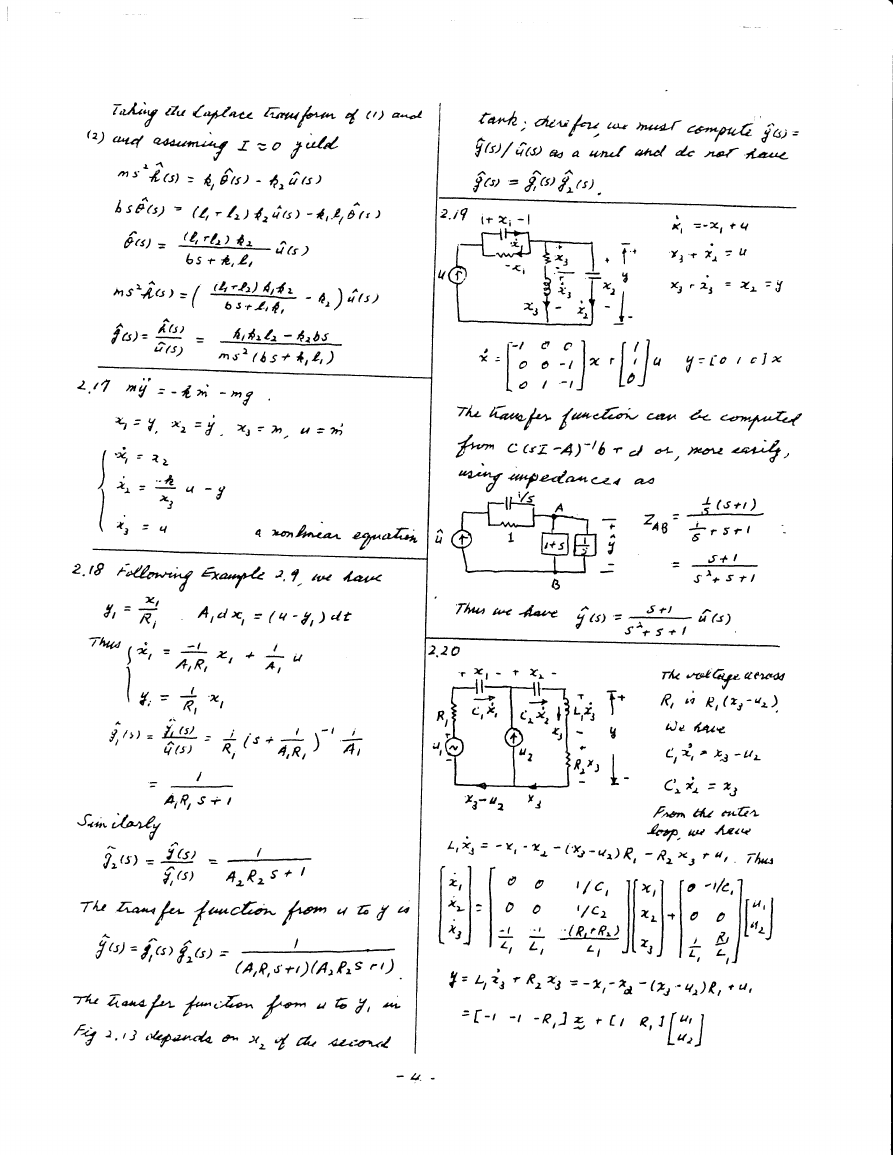 Taking the Laplace transform of (1) and
(2) and assuming I ≈ 0 yield
ms²ĥ(s) = k₁θ̂(s) - k₂û(s)
bsθ̂(s) = (l₁+l₂)k₂û(s) - k₁l₁θ̂(s)
θ̂(s) = (l₁+l₂)k₂ / (bs+k₁l₁) û(s)
ms²ĥ(s) = ( (l₁+l₂)k₁k₂ / (bs+l₁k₁) - k₂ ) û(s)
ĝ(s) = ĥ(s)/û(s) = (k₁k₂l₂ - k₂bs) / (ms²(bs+k₁l₁))
2.17 mÿ = -kṁ - mg.
x₁ = y, x₂ = ẏ, x₃ = m, u = ṁ
ẋ₁ = x₂
ẋ₂ = -k/x₃ u - g
ẋ₃ = u a nonlinear equation
2.18 Following Example 2.9, we have
y₁ = x₁/R₁ A₁dx₁ = (u-y₁)dt
Thus { ẋ₁ = -1/(A₁R₁) x₁ + 1/A₁ u
y₁ = 1/R₁ x₁
ĝ₁(s) = ŷ₁(s)/û(s) = 1/R₁ (s + 1/(A₁R₁))⁻¹ 1/A₁
= 1/(A₁R₁s+1)
Similarly
ĝ₂(s) = ŷ(s)/ŷ₁(s) = 1/(A₂R₂s+1)
The transfer function from u to y is
ĝ(s) = ĝ₁(s)ĝ₂(s) = 1/((A₁R₁s+1)(A₂R₂s+1)).
The transfer function from u to y₁ in
Fig 2.13 depends on x₂ of the second
tank; therefore, we must compute ĝ(s) =
ŷ(s)/û(s) as a unit and do not have
ĝ(s) = ĝ₁(s)ĝ₂(s).
2.19
+ x₁ -
1
ẋ₁
-x₁
u
+ x₃ -
+ ẋ₃ -
x₃
+ x₂ -
ẋ₂
+ y -
ẋ₁ = -x₁ + u
x₃ + ẋ₂ = u
x₃ + ẋ₃ = x₂ = y
ẋ = [-1 0 0; 0 0 -1; 0 1 -1] x + [1; 1; 0] u y = [0 1 0] x
The transfer function can be computed
from c(sI-A)⁻¹b + d or, more easily,
using impedances as
1/s
1
û
A
1+s
1/s
+ ŷ -
B
Z_AB = (1/s (s+1)) / (1/s + s + 1)
= (s+1)/(s²+s+1)
Thus we have ŷ(s) = (s+1)/(s²+s+1) û(s)
2.20
+ x₁ - + x₂ -
R₁
C₁ẋ₁
C₂ẋ₂
L₁ẋ₃
x₃
u₁
u₂
R₂x₃
+ y -
x₃-u₂
x₃
The voltage across
R₁ is R₁(x₃-u₂).
We have
C₁ẋ₁ = x₃ - u₂
C₂ẋ₂ = x₃
From the outer
loop, we have
L₁ẋ₃ = -x₁ - x₂ - (x₃-u₂)R₁ - R₂x₃ + u₁. Thus
[ẋ₁; ẋ₂; ẋ₃] = [0 0 1/C₁; 0 0 1/C₂; -1/L₁ -1/L₁ -(R₁+R₂)/L₁] [x₁; x₂; x₃] + [0 -1/C₁; 0 0; 1/L₁ R₁/L₁] [u₁; u₂]
y = L₁ẋ₃ + R₂x₃ = -x₁ - x₂ - (x₃-u₂)R₁ + u₁
= [-1 -1 -R₁] x + [1 R₁] [u₁; u₂]
- 4 -